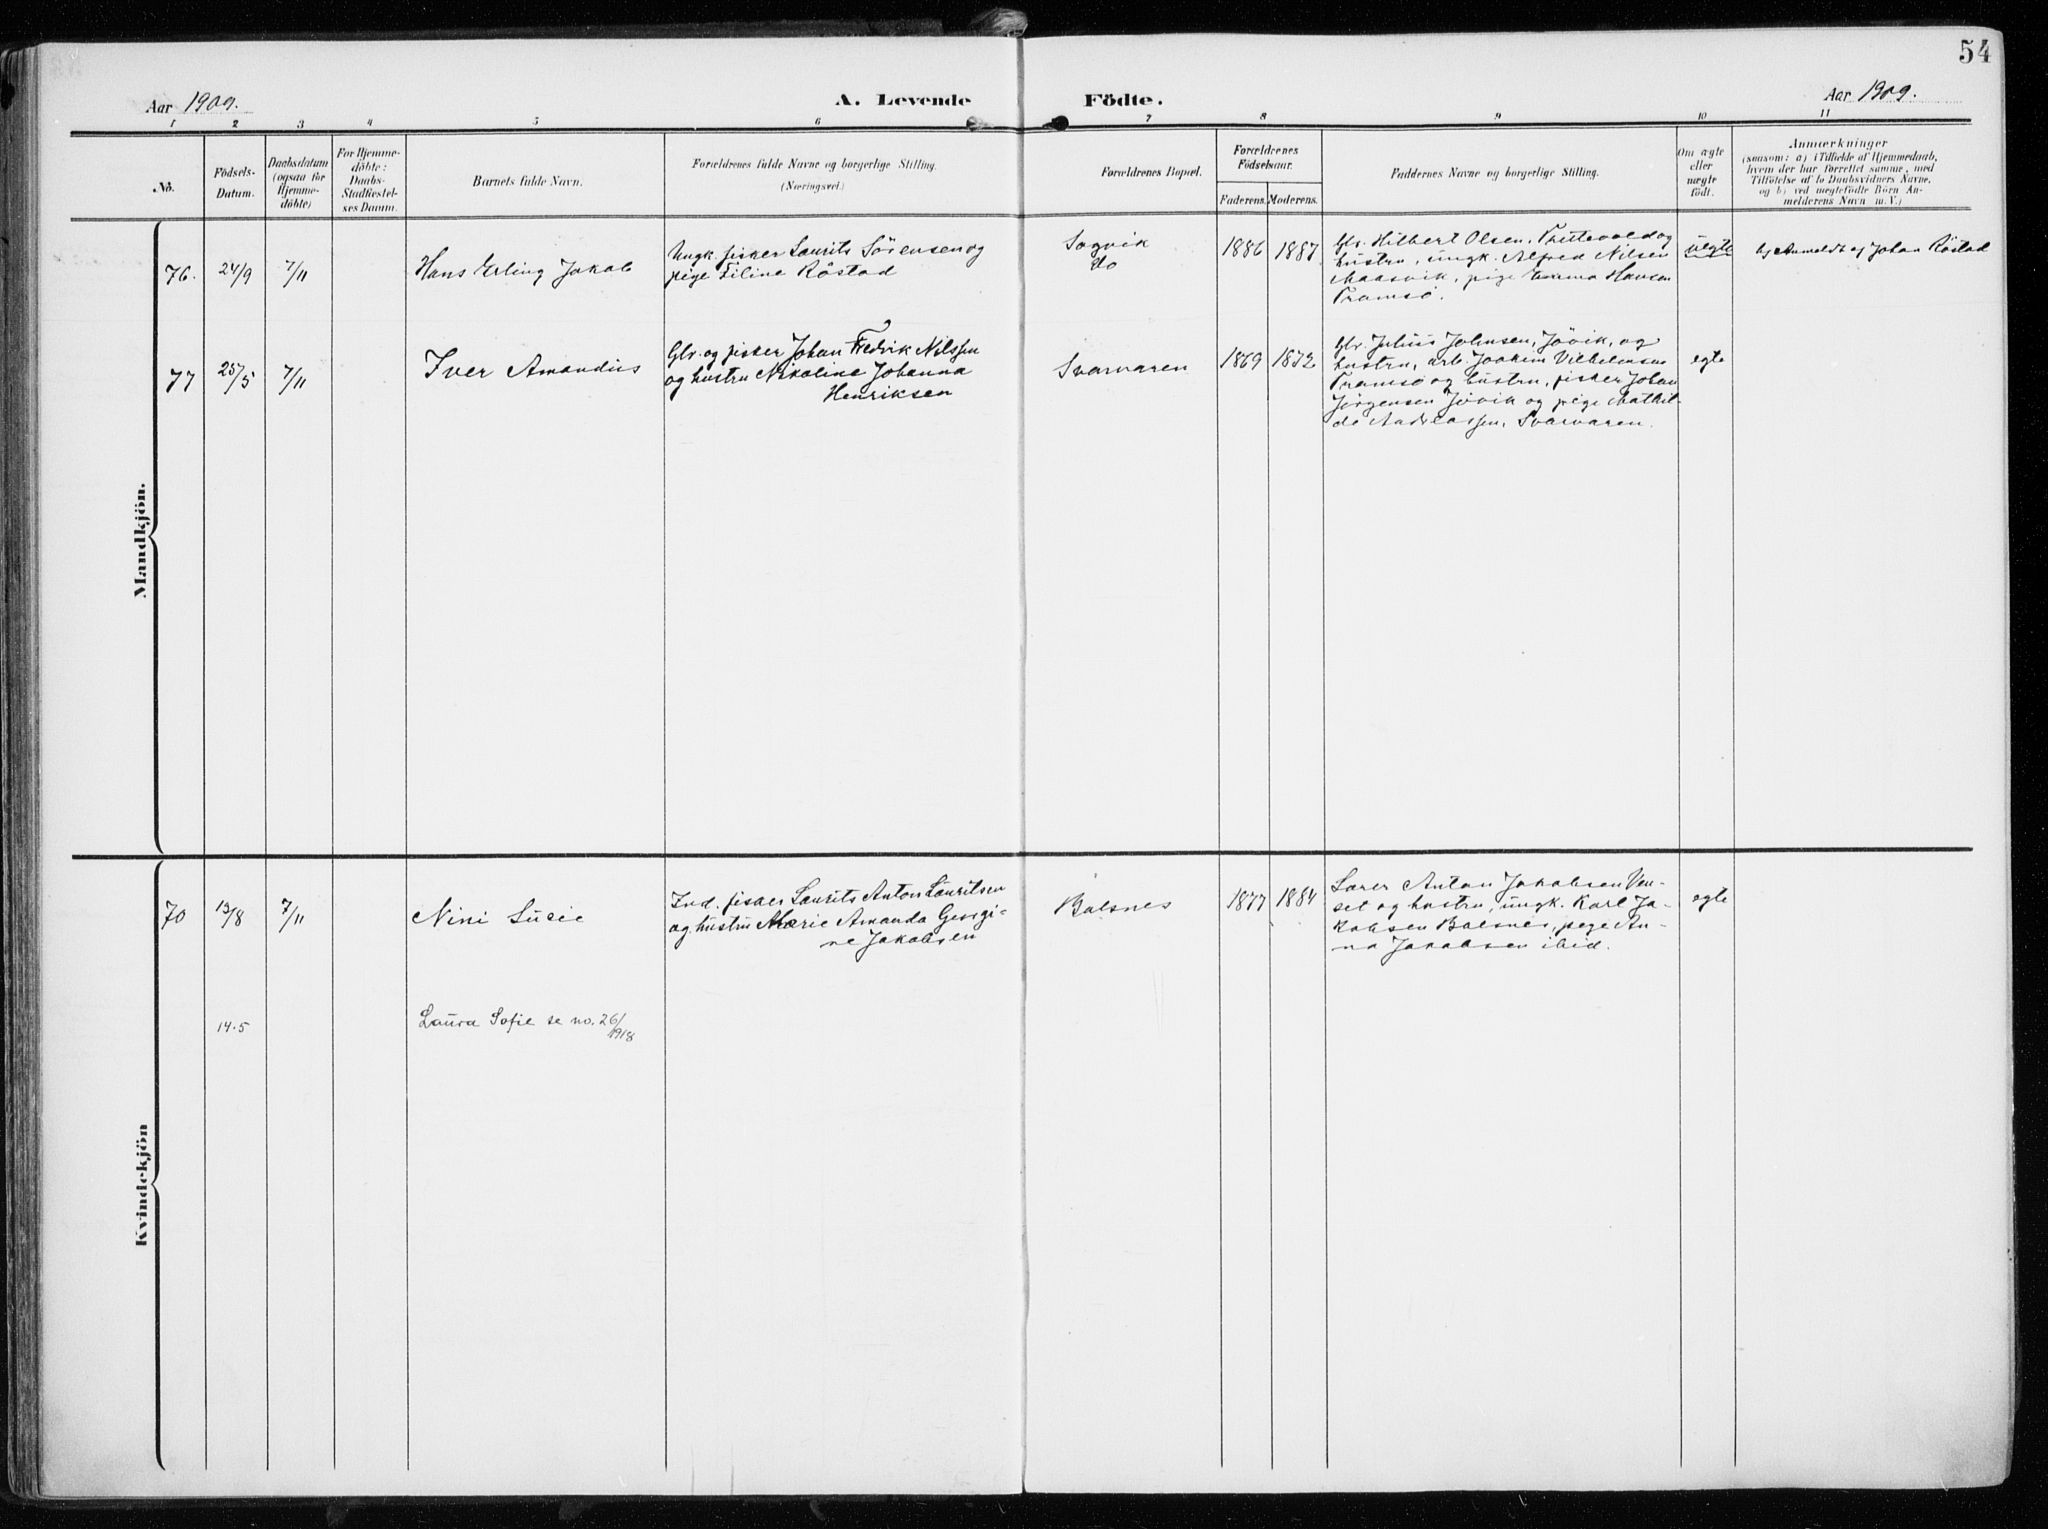 54
Aar 1909.
A. Levende Födte.
Aar 1909.
1 2 3 4 5 6 7 8 9 10 11
No.
Födsels-
Datum.
Daabsdatum
(ogsaa for
Hjemme-
döbte)
For Hjemme-
döbte:
Daabs-
Stadfæstel-
ses Datum.
Barnets fulde Navn.
Forældrenes fulde Navne og borgerlige Stilling.
(Næringsvei.)
Forældrenes Bopæl.
Forældrenes
Födselsaar.
Faderens. Moderens.
Faddernes Navne og borgerlige Stilling.
Om ægte
eller
uægte
födt.
Anmærkninger
(saasom: a) i Tilfælde af Hjemmedaab,
hvem der har forrettet samme, med
Tilföielse af to Daabsvidners Navne,
og b) ved uægtefödte Börn An-
melderens Navn m. V.)
Mandkjön.
76. 24/9 7/11
Hans Erling Jakob
Ungk. fisker Laurits Sörensen og
pige Eline Röstad
Sagvik
do
1886 1887.
Gbr. Hilbert Olsen, Trettevold og
hustru, ungk. Alfred Nilsen
Maasvik, pige Emma Hansen
Tromsö.
uegte
b) Anmeldt af Johan Röstad
77 25/5 7/11
Iver Amandus
Gbr. og fisker Johan Fredrik Nilssen
og hustru Nikoline Johanna
Henriksen
Svarvaren
1869 1872
Gbr. Julius Johnsen, Jövik, og
hustru, arb. Joakim Vilhelmsen
Tromsö og hustru, fisker Johan
Jörgensen Jövik og pige Mathil-
de Andreassen, Svarvaren.
egte
Kvindekjön
70 13/8 7/11
Nini Lusie
Ind. fisker Laurits Anton Lauritsen
og hustru Marie Amanda Georgi-
ne Jakobsen
Balsnes
1877 1884
Lærer Anton Jakobsen Ven-
set og hustru, ungk. Karl Ja-
kobsen Balsnes, pige An-
na Jakobsen ibid.
egte
14.5
Laura Sofie se no. 26/
1918